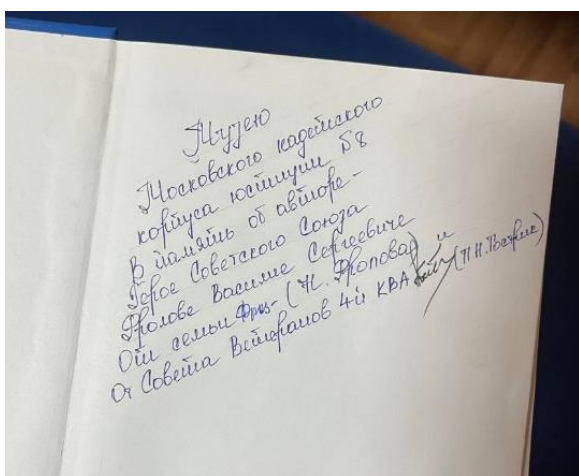 Музею
Московского кадетского
корпуса юстиции №8
В память об авторе -
Герое Советского Союза
Фролове Василие Сергеевиче
От семьи (Н. Фролова) и
От Совета Ветеранов 4й КВА